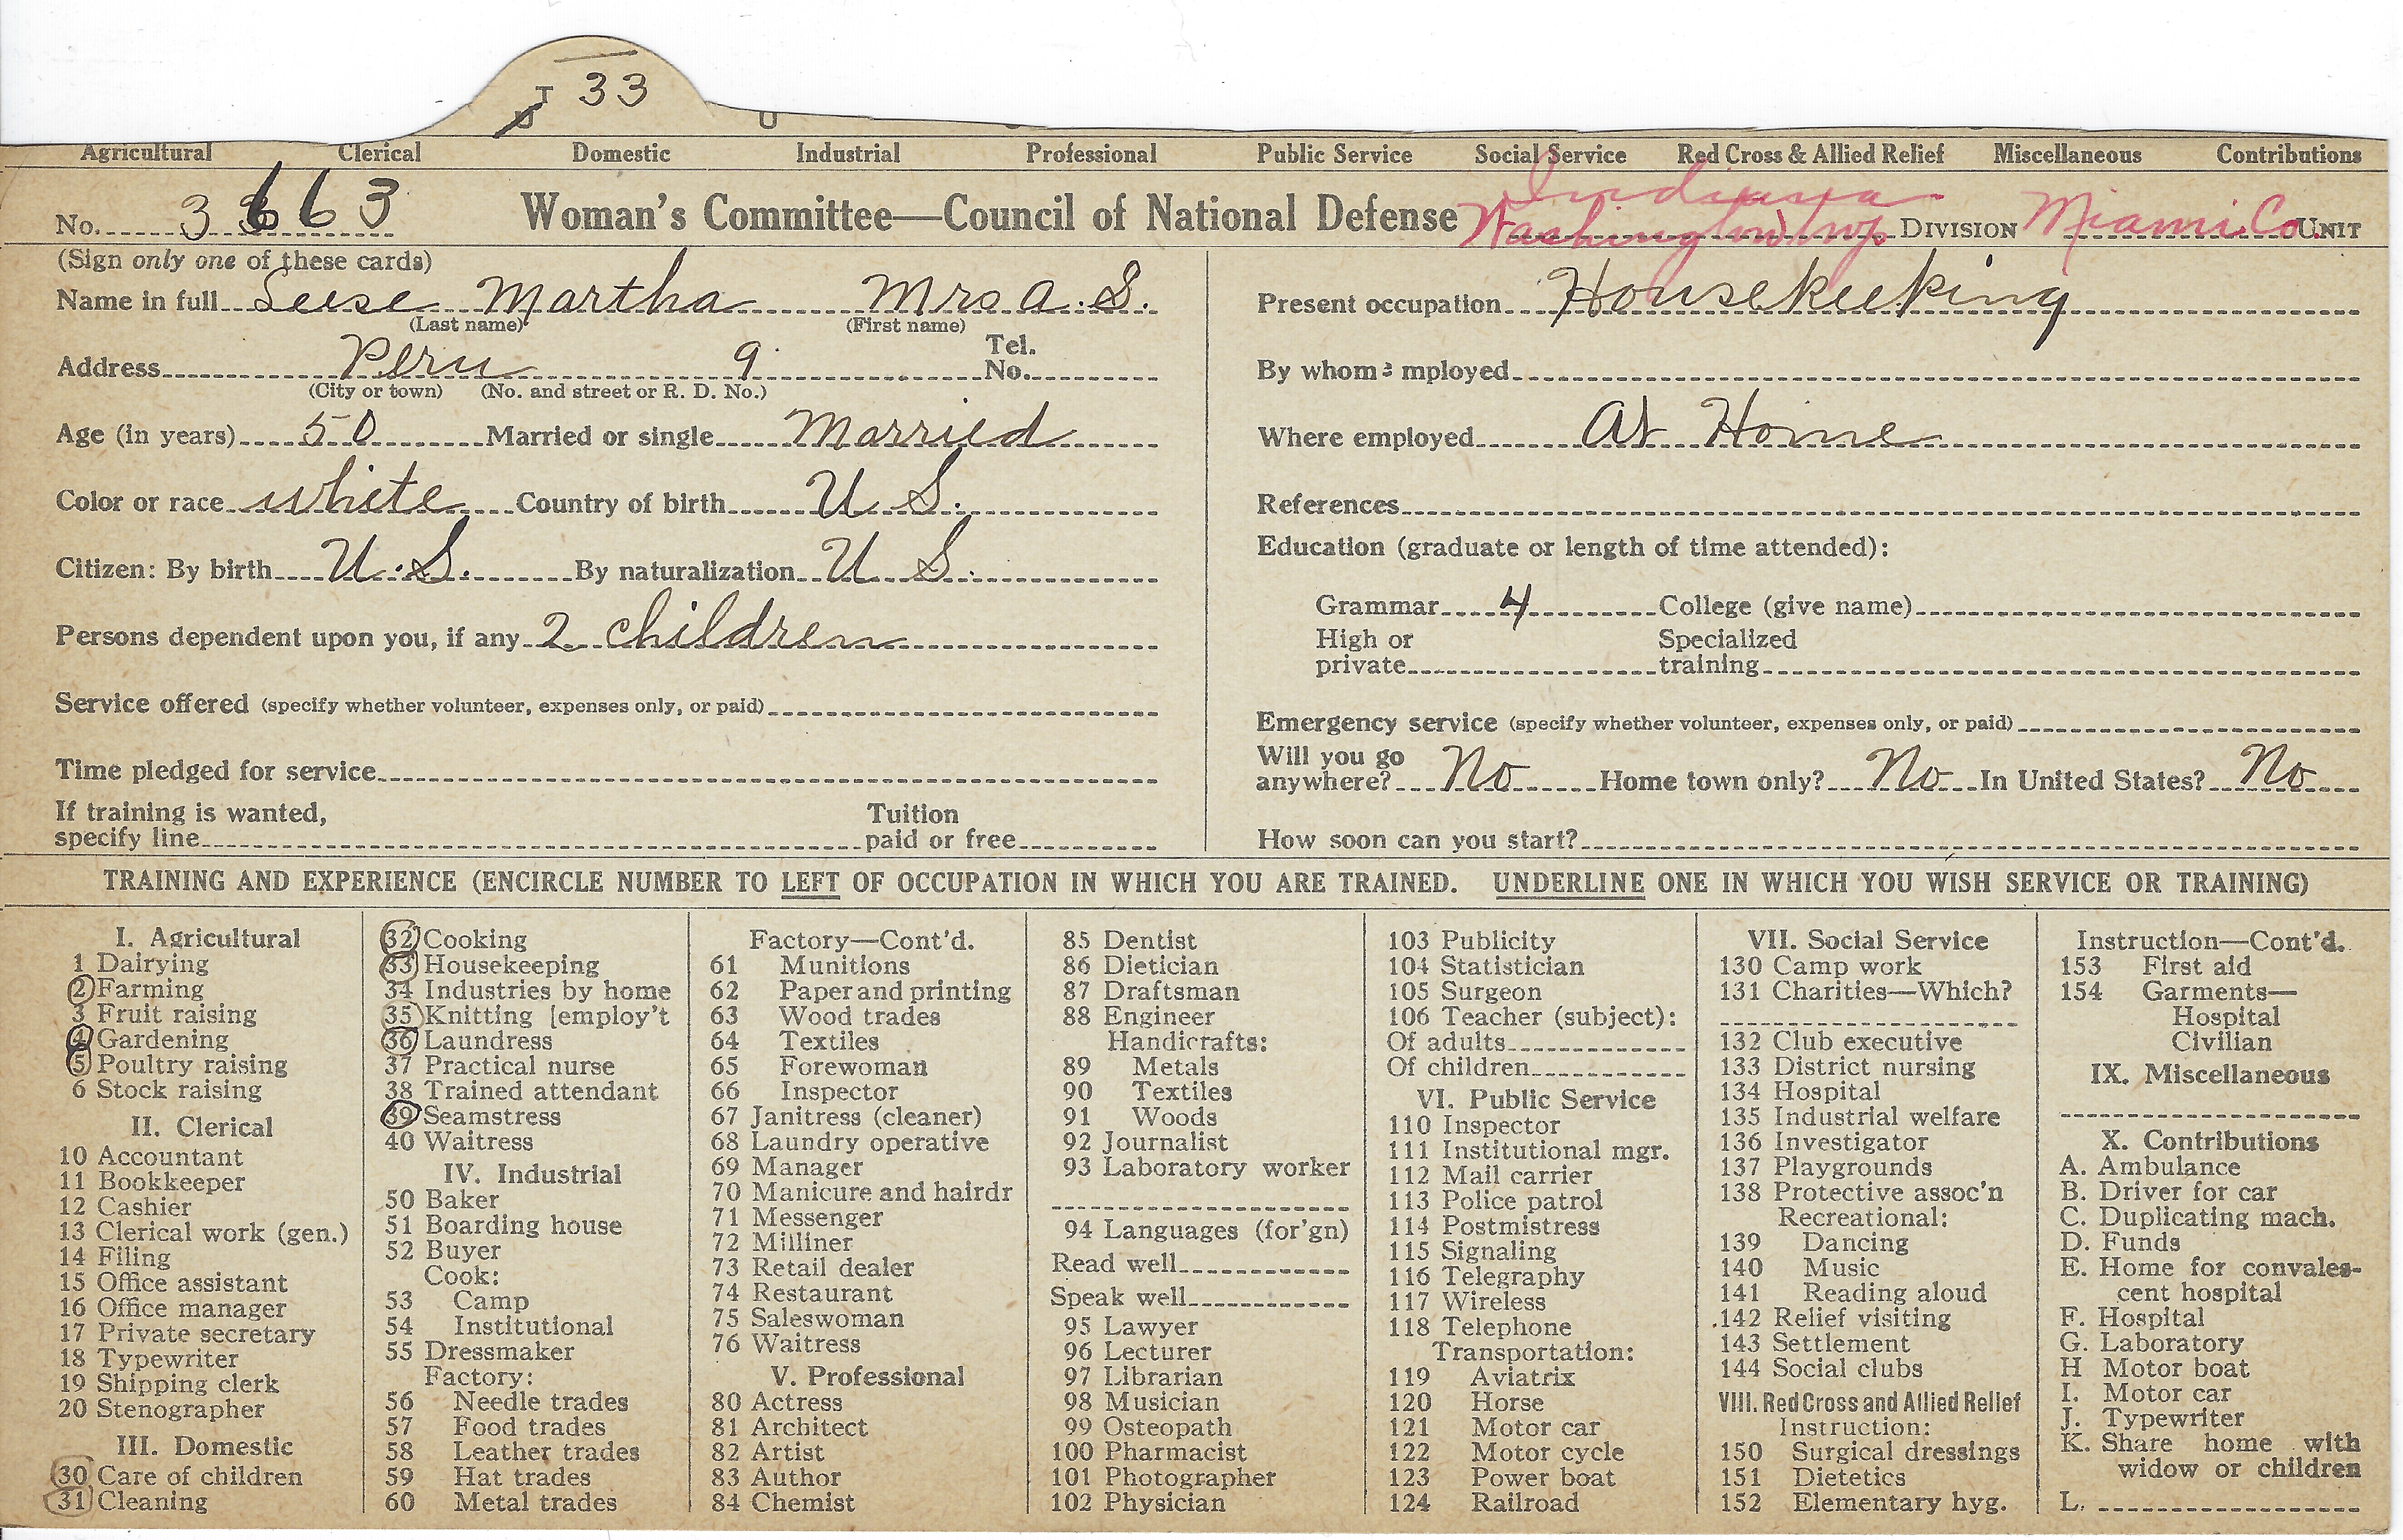 T 33
U U
Agricultural Clerical Domestic Industrial Professional Public Service Social Service Red Cross & Allied Relief Miscellaneous Contributions
No. 3 3663 Woman's Committee—Council of National Defense Indiana Washington Twp DIVISION Miami Co. UNIT
(Sign only one of these cards)
Name in full Leese Martha Mrs A. S.
(Last name) (First name)
Address Peru 9 Tel. No.
(City or town) (No. and street or R. D. No.)
Age (in years) 50 Married or single Married
Color or race white Country of birth U S.
Citizen: By birth U. S. By naturalization U S.
Persons dependent upon you, if any 2 children
Service offered (specify whether volunteer, expenses only, or paid)
Time pledged for service
If training is wanted, specify line Tuition paid or free
Present occupation Housekeeping
By whom employed
Where employed At Home
References
Education (graduate or length of time attended):
Grammar 4 College (give name)
High or private Specialized training
Emergency service (specify whether volunteer, expenses only, or paid)
Will you go anywhere? No Home town only? No In United States? No
How soon can you start?
TRAINING AND EXPERIENCE (ENCIRCLE NUMBER TO LEFT OF OCCUPATION IN WHICH YOU ARE TRAINED. UNDERLINE ONE IN WHICH YOU WISH SERVICE OR TRAINING)
I. Agricultural
1 Dairying
2 Farming
3 Fruit raising
4 Gardening
5 Poultry raising
6 Stock raising
II. Clerical
10 Accountant
11 Bookkeeper
12 Cashier
13 Clerical work (gen.)
14 Filing
15 Office assistant
16 Office manager
17 Private secretary
18 Typewriter
19 Shipping clerk
20 Stenographer
III. Domestic
30 Care of children
31 Cleaning
32 Cooking
33 Housekeeping
34 Industries by home
35 Knitting [employ't
36 Laundress
37 Practical nurse
38 Trained attendant
39 Seamstress
40 Waitress
IV. Industrial
50 Baker
51 Boarding house
52 Buyer
Cook:
53 Camp
54 Institutional
55 Dressmaker
Factory:
56 Needle trades
57 Food trades
58 Leather trades
59 Hat trades
60 Metal trades
Factory—Cont'd.
61 Munitions
62 Paper and printing
63 Wood trades
64 Textiles
65 Forewoman
66 Inspector
67 Janitress (cleaner)
68 Laundry operative
69 Manager
70 Manicure and hairdr
71 Messenger
72 Milliner
73 Retail dealer
74 Restaurant
75 Saleswoman
76 Waitress
V. Professional
80 Actress
81 Architect
82 Artist
83 Author
84 Chemist
85 Dentist
86 Dietician
87 Draftsman
88 Engineer
Handicrafts:
89 Metals
90 Textiles
91 Woods
92 Journalist
93 Laboratory worker
94 Languages (for'gn)
Read well
Speak well
95 Lawyer
96 Lecturer
97 Librarian
98 Musician
99 Osteopath
100 Pharmacist
101 Photographer
102 Physician
103 Publicity
104 Statistician
105 Surgeon
106 Teacher (subject):
Of adults
Of children
VI. Public Service
110 Inspector
111 Institutional mgr.
112 Mail carrier
113 Police patrol
114 Postmistress
115 Signaling
116 Telegraphy
117 Wireless
118 Telephone
Transportation:
119 Aviatrix
120 Horse
121 Motor car
122 Motor cycle
123 Power boat
124 Railroad
VII. Social Service
130 Camp work
131 Charities—Which?
132 Club executive
133 District nursing
134 Hospital
135 Industrial welfare
136 Investigator
137 Playgrounds
138 Protective assoc'n
Recreational:
139 Dancing
140 Music
141 Reading aloud
142 Relief visiting
143 Settlement
144 Social clubs
VIII. Red Cross and Allied Relief
Instruction:
150 Surgical dressings
151 Dietetics
152 Elementary hyg.
Instruction—Cont'd.
153 First aid
154 Garments—
Hospital
Civilian
IX. Miscellaneous
X. Contributions
A. Ambulance
B. Driver for car
C. Duplicating mach.
D. Funds
E. Home for convales-
cent hospital
F. Hospital
G. Laboratory
H Motor boat
I. Motor car
J. Typewriter
K. Share home with
widow or children
L.